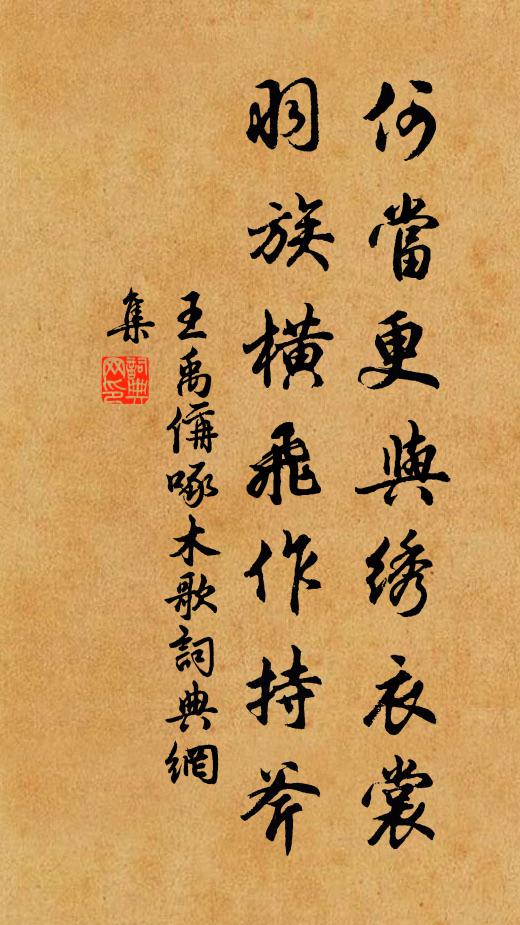 何當更與绣衣裳
羽族橫飛作持斧
王禹偁啄木歌詞典網
集
詞典
网印